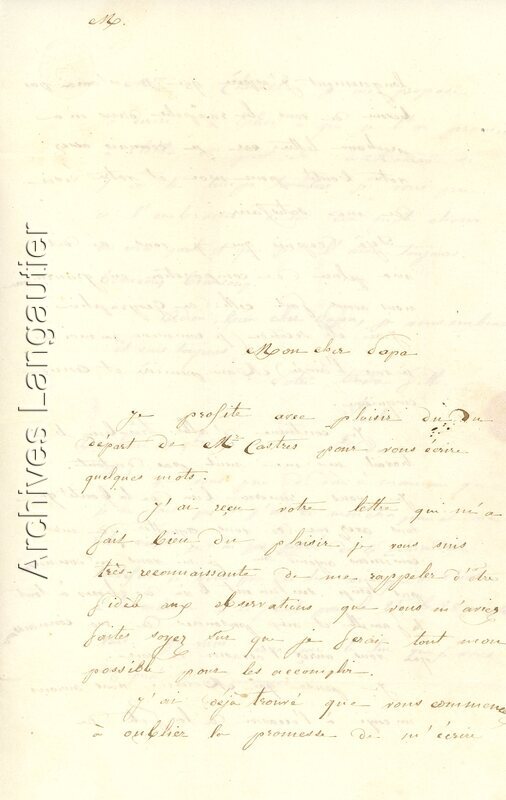 M.
Mon cher Papa
Je profite avec plaisir du du
départ de Mr Castres pour vous écrire
quelques mots.
J'ai reçu votre lettre qui m'a
fait bien du plaisir je vous suis
très-reconnaissante de me rappeler d'être
fidèle aux observations que vous m'aviez
faites soyez sur que je ferai tout mon
possible pour les accomplir.
J'ai déjà trouvé que vous commenc
à oublier la promesse de m'écrire
Archives Langautier